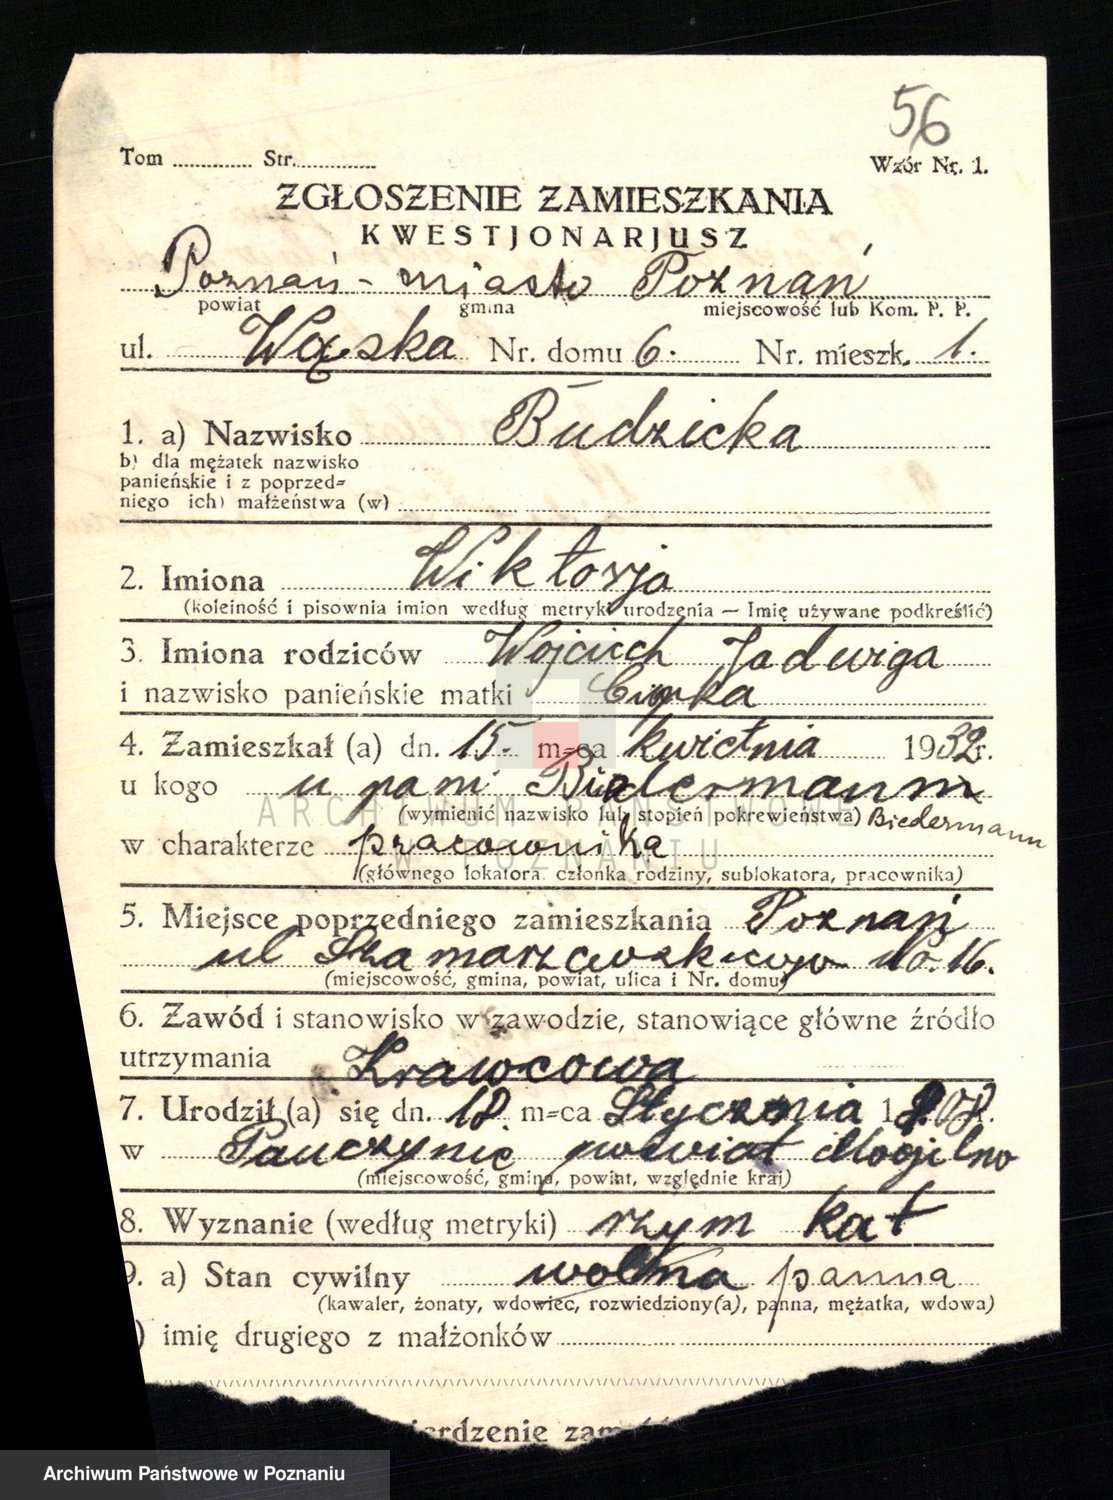 56
Tom ............ Str. ............
Wzór Nr. 1.
ZGŁOSZENIE ZAMIESZKANIA
KWESTJONARJUSZ
Poznań - miasto Poznań
powiat gmina miejscowość lub Kom. P. P.
ul. Wąska Nr. domu 6. Nr. mieszk. 1.
1. a) Nazwisko Budzicka
b) dla mężatek nazwisko
panieńskie i z poprzed=
niego ich) małżeństwa (w)
2. Imiona Wiktorja
(kolejność i pisownia imion według metryki urodzenia — Imię używane podkreślić)
3. Imiona rodziców Wojciech Jadwiga
i nazwisko panieńskie matki
4. Zamieszkał (a) dn. 15. m=ca kwietnia 1932r.
u kogo u pani Biedermann
(wymienić nazwisko lub stopień pokrewieństwa) Biedermann
w charakterze pracownika
(głównego lokatora, członka rodziny, sublokatora, pracownika)
5. Miejsce poprzedniego zamieszkania Poznań
ul Szamarzewskiego No. 16.
(miejscowość, gmina, powiat, ulica i Nr. domu)
6. Zawód i stanowisko w zawodzie, stanowiące główne źródło
utrzymania Krawcowa
7. Urodził (a) się dn. 18 m=ca Stycznia 1908r.
w powiat Mogilno
(miejscowość, gmina, powiat, względnie kraj)
8. Wyznanie (według metryki) rzym kat
9. a) Stan cywilny wolna panna
(kawaler, żonaty, wdowiec, rozwiedziony(a), panna, mężatka, wdowa)
) imię drugiego z małżonków
erdzenie zam
ARCHIWUM PAŃSTWOWE
W POZNANIU
Archiwum Państwowe w Poznaniu